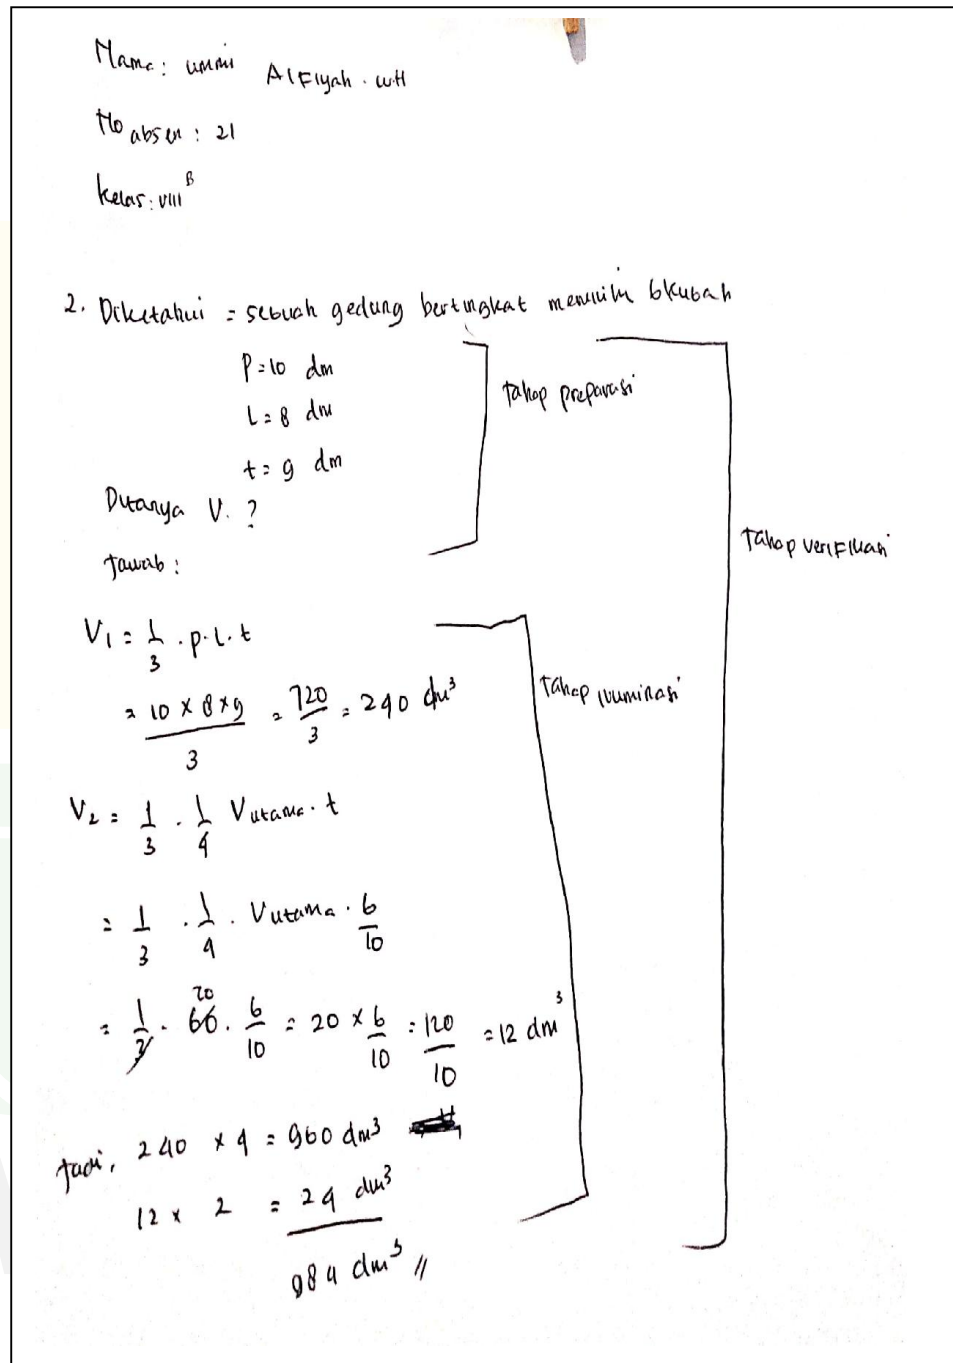 Nama : ummi Alfiyah . WH
No absen : 21
kelas : VIII B
2. Diketahui = sebuah gedung bertingkat memiliki 6 kubah
P = 10 dm
L = 8 dm
t = 9 dm
tahap preparasi
Ditanya V. ?
Jawab :
tahap verifikasi
V1 = 1/3 . p . l . t
= 10 x 8 x 9 / 3 = 720/3 = 240 dm³
tahap iluminasi
V2 = 1/3 . 1/4 Vutama . t
= 1/3 . 1/4 . Vutama . 6/10
= 1/3 . 60 20 . 6/10 = 20 x 6/10 = 120/10 = 12 dm³
Jadi, 240 x 4 = 960 dm³
12 x 2 = 24 dm³
984 dm³ //